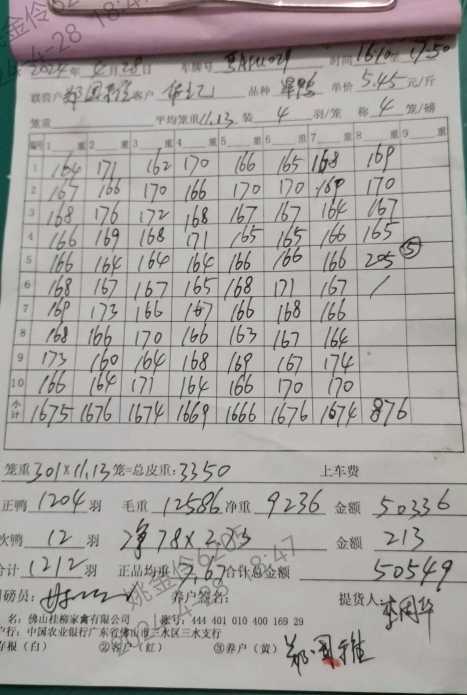 2024年4月28日 车牌号 时间1610-1750
联营户 客户 品种 单价5.45元/斤
笼重 平均笼重11.13 装4羽/笼 称4笼/磅
编号 1 重 2 重 3 重 4 重 5 重 6 重 7 重 8 重 9 重
1 164 171 162 170 166 165 168 169
2 167 166 170 166 170 170 169 170
3 168 176 172 168 167 167 164 167
4 166 169 168 171 165 165 166 165
5 166 164 164 164 166 166 166 205 ⑤
6 168 167 167 165 168 171 167 /
7 169 173 166 167 166 168 166
8 168 166 170 166 163 167 164
9 173 160 164 168 169 167 174
10 166 164 171 164 166 170 170
小计 1675 1676 1674 1669 1666 1676 1674 876
笼重301×11.13笼=总皮重:3350 上车费
正鸭1204羽 毛重12586 净重9236 金额50336
次鸭12羽 净78× 金额213
合计1212羽 正品均重7.67 合计总金额50549
司磅员: 养户签名: 提货人:
名:佛山桂柳家禽有限公司 账号:444 401 010 400 169 29
户行:中国农业银行广东省佛山市三水区三水支行
存根(白) ②客户(红) ③养户(黄)